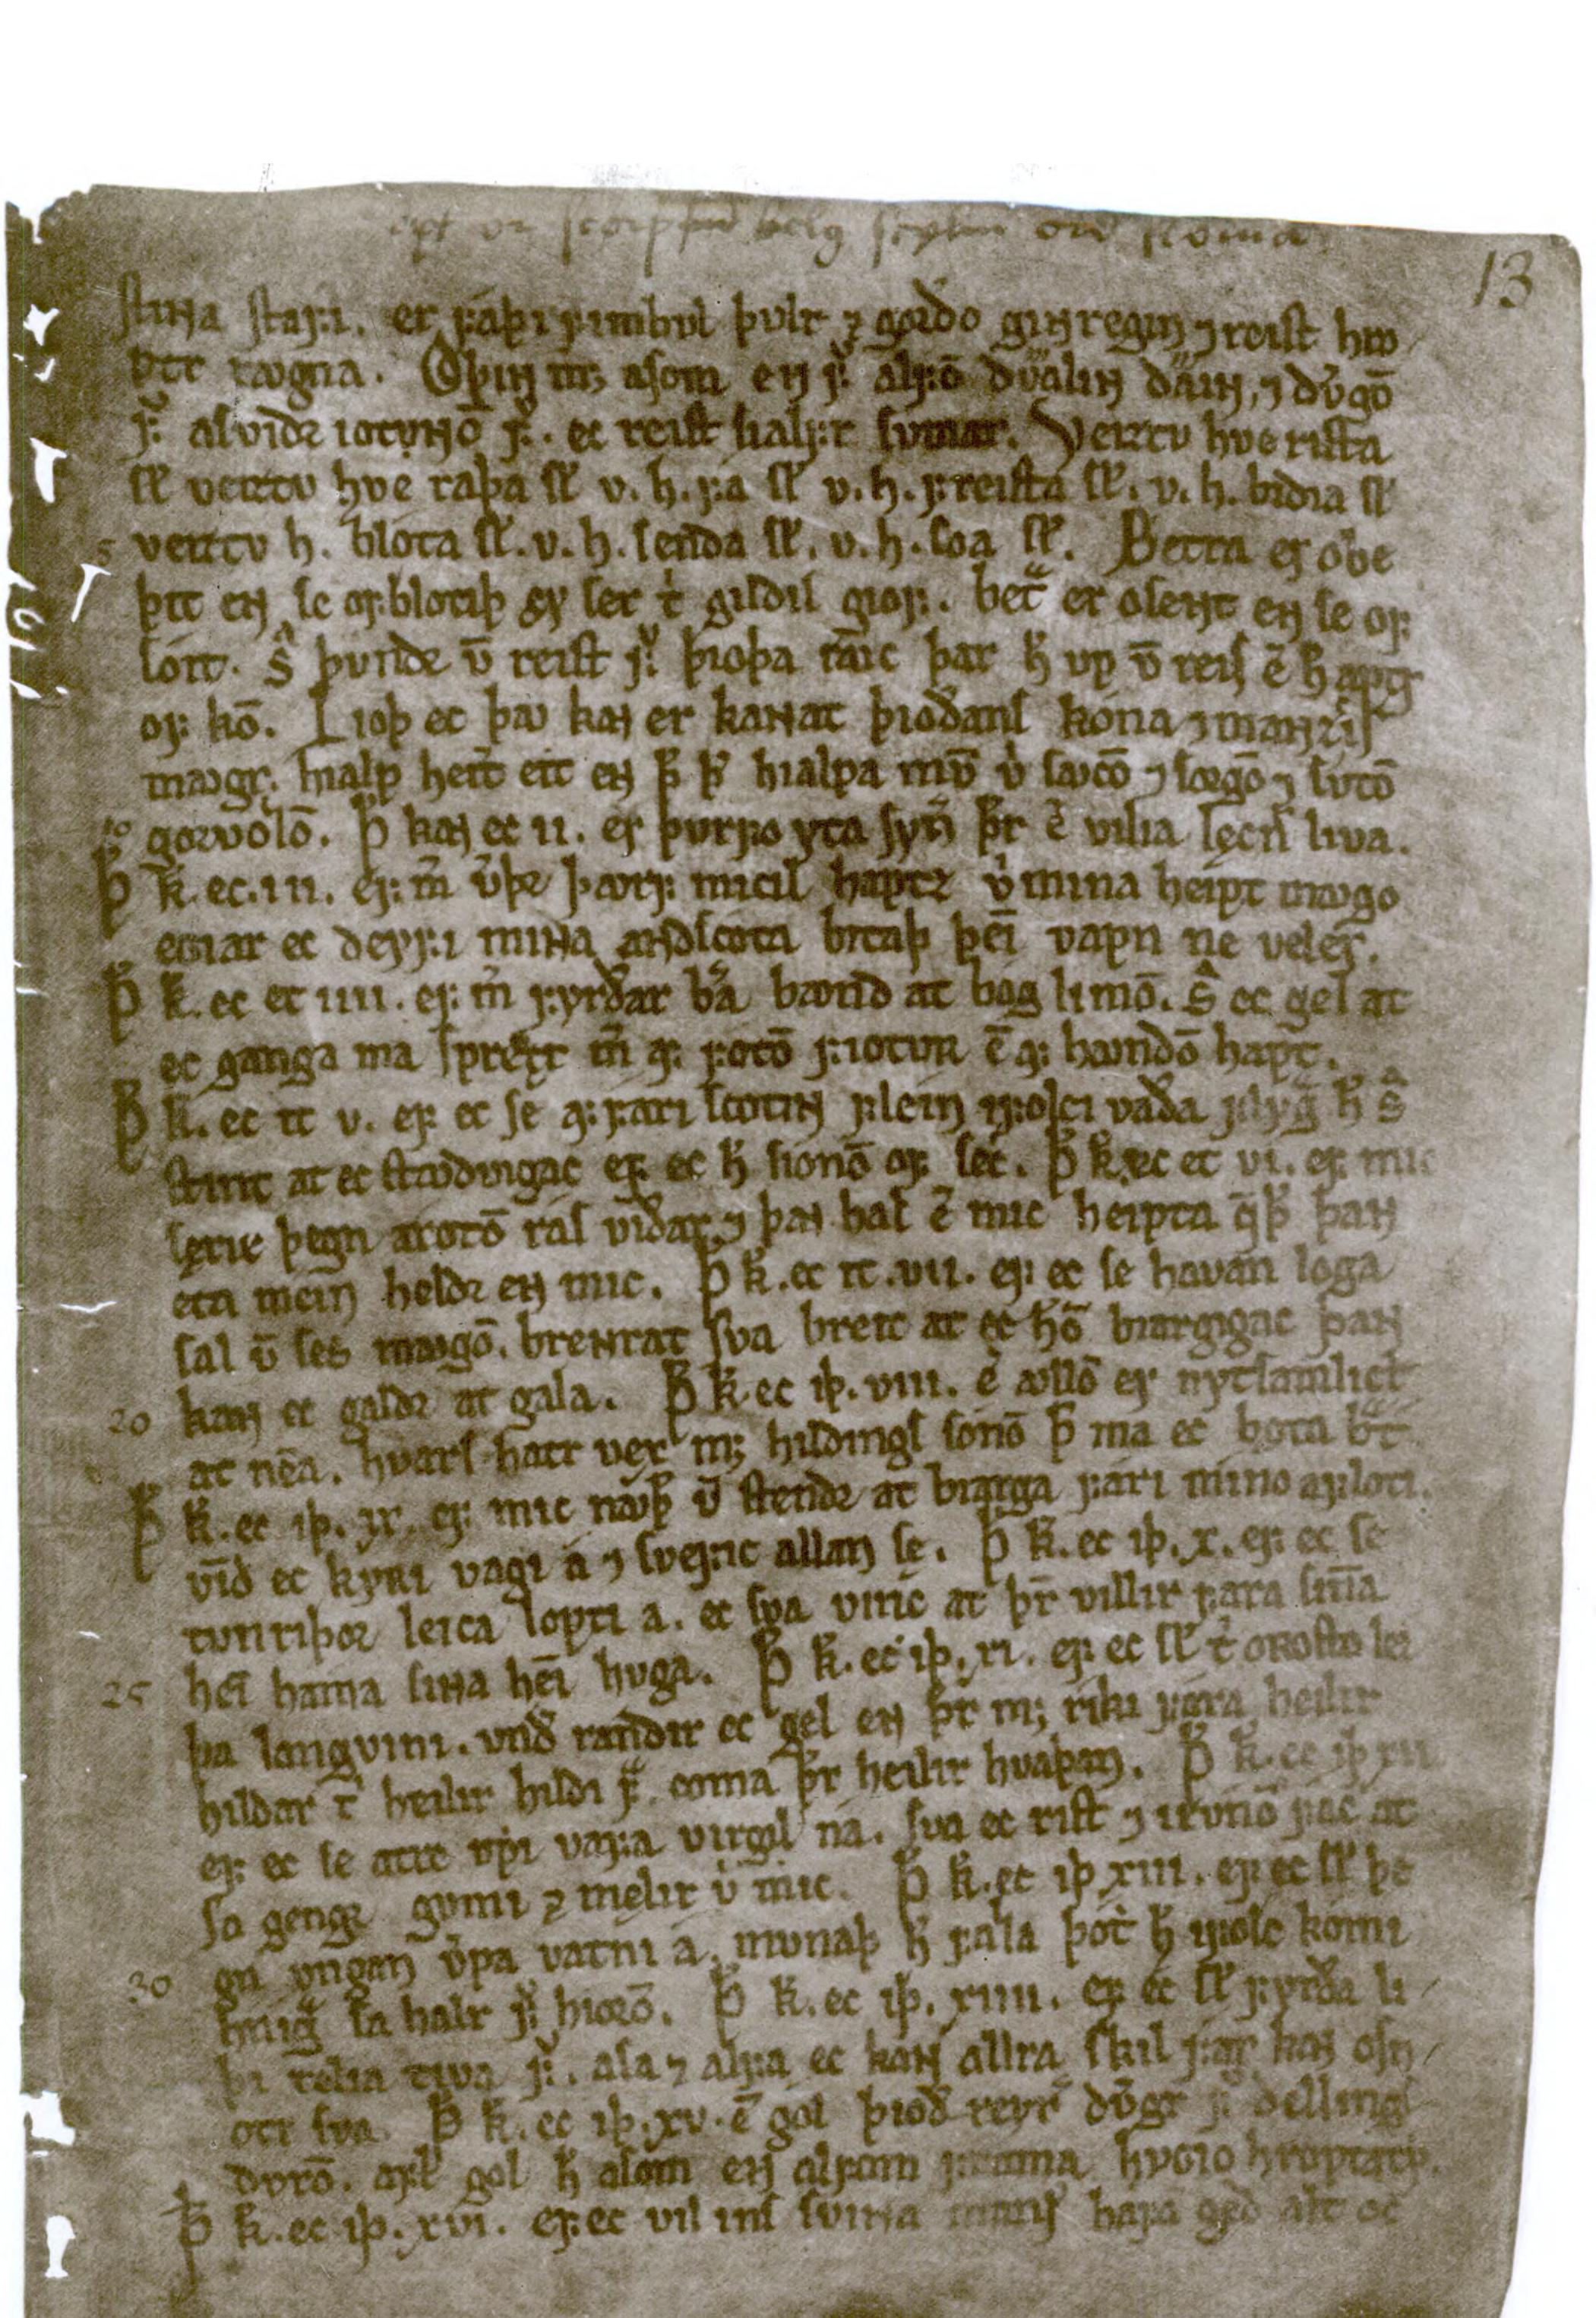 ept or scorpom belg scylin orð scoma
13
stiɴa stafi. er faþi fimbul þulr ⁊ gorðo giɴregin ⁊ reist hro
ptr ꜹgna. Oþiɴ m; asom en f͛ alfō dvaliɴ dáiɴ, ⁊ dv́gō
f͛ asviðr iotvɴō f͛. ec reist sialfr svmar. Veiztv hve rista
sl̄ veiztv hve raþa sl̄ v. h. fá sl̄ v. h. freista sl̄. v. h. biðia sl̄
5 veiztv h. blóta sl̄. v. h. senda sl̄. v. h. sóa sl̄. Betra er obe
þit en se ofblotiþ ey ser t̛ gildis giof. bet͛ er osent en se of
sóit. s̄ þvndr v̄ reist f͛ þioþa rꜹc þar h̄ vp v̄ reis ē h̄ aptr
of kō. Lioþ ec þꜹ kaɴ er kaɴat þioðans kona ⁊ manzcis
mꜹgr. hialp heit̛ eit en þ̄ þ̛ hialpa mv̄ v̛ sꜹcō ⁊ sorgō ⁊ svtō
10 gorvolō. Þ̄ kaɴ ec ii. er þvrfo yta syn̄ þr̄ ē vilia lęcn̄ liva.
Þ̄ k̄. ec. iii. ef m̄ v̛þr þꜹrf micil haptz v̛ mina heipt mꜹgo
eɢiar ec deyfi miɴa andscota bitaþ þeī vapn ne veler.
Þ̄ k̄. ec et iiii. ef m̄ fyrðar b͛a bꜹnd at bóg limō. s̄ ec gel at
ec ganga má sprettr m̄ af fotō fioturr ē af hꜹndō hapt.
Þ̄ k̄. ec it v. ef ec se af fari scotiɴ flein i folci vaða flygr̄ h̄ s̄
stint at ec stꜹðvigac ef ec h̄ sionō of sec. Þ̄ k̄. ec et vi. ef mic
sęrir þegn a rotō rás viðar, ⁊ þaɴ hal ē mic heipta q̄þ̛ þaɴ
eta mein heldr en mic. Þ̄ k̄. ec it. vii. ef ec se havan loga
sal v̄ ses mꜹgō. breɴrat sva breit at ec h̄ō biargigac þaɴ
20 kaɴ ec galdr at gala. Þ̄ k̄. ec iþ. viii. ē ꜹllō er nytsamlict
at nēa. hvars hatr vex m; hildings sonō þ̄ ma ec bǫta b͛t
Þ̄ k̄. ec iþ. ix. ef mic nꜹþ̛ v̄ stendr at biarga fari mino a floti.
vīd ec kyrri vagi á ⁊ svefic allan sę. Þ̄ k̄. ec iþ. x. ef ec se
tvnriþor leica lopti a. ec sva viɴc at þr̄ villir fara siɴa
25 heī hama siɴa heī hvga. Þ̄ k̄. ec iþ. xi. ef ec sl̄ t̛ orrosto lei
þa langvini. vnd̄ randir ec gel en þr̄ m; riki fara heilir
hildar t̛ heilir hildi f͛. coma þr̄ heilir hvaþan. Þ̄ k̄. ec iþ xii
ef ec se a tre vpi váfa virgil ná. sva ec rist ⁊ i rvnō fác at
sa gengr gvmi ⁊ męlir v̛ mic. Þ̄ k̄. ec iþ xiii. ef ec sl̄ þe
30 gn vngan v̛pa vatni á. mvnaþ h̄ fala þot̛ h̄ i folc komi
hnigr̄ sa halr f͛ hiorō. Þ̄ k̄. ec iþ. xiiii. ef ec sl̄ fyrða li
þi telia tiva f͛. ása ⁊ alfa ec kaɴ allra skil fár kaɴ osn
otr sva. Þ̄ k̄. ec iþ. xv. ē gól þioð reyr͛ dv́gr f͛ dellings
dvrō. afl gól h̄ asom en alfom frama hyɢio hroptatý.
Þ̄ k̄. ec iþ. xvi. ef ec vil ins sviɴa mans hafa geð alt oc